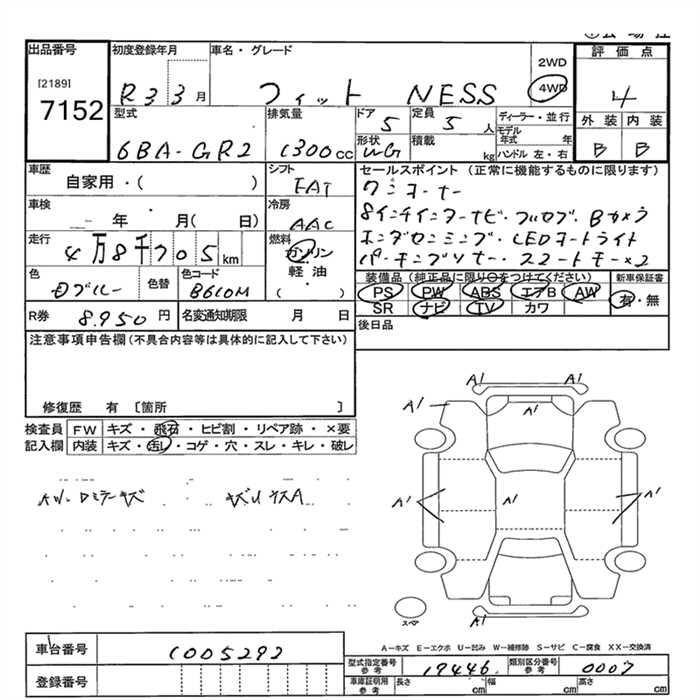 出品番号
[2189]
7152
初度登録年月
R3 3月
車名・グレード
フィット NESS
2WD
4WD
評価点
4
外装 内装
B B
型式
6BA-GR2
排気量
1300cc
ドア
5
定員
5人
ディーラー・並行
モデル年式 年
ハンドル 左・右
形状
WG
積載
kg
車歴
自家用・( )
シフト
FAT
車検
年 月( 日)
冷房
AAC
走行
4万8千705km
燃料
ガソリン
軽油
( )
色
色替
色コード
B610M
R券
8.950円
名変通知期限 月 日
セールスポイント(正常に機能するものに限ります)
ワンオーナー
8インチインターナビ・フルセグ・Bカメラ
LEDオートライト
スマートキー×2
装備品(純正品に限り○をつけてください)
PS PW ABS エアB AW
SR ナビ TV カワ
新車保証書
有・無
後日品
注意事項申告欄(不具合内容等は具体的に記入して下さい)
修復歴 有 〔箇所 〕
検査員記入欄
FW キズ・飛石・ヒビ割・リペア跡・×要
内装 キズ・汚レ・コゲ・穴・スレ・キレ・破レ
A1 A1
A1 A1
A1 A1 A1
A1
スペア
A-キズ E-エクボ U-凹み W-補修跡 S-サビ C-腐食 XX-交換済
車台番号
1005292
登録番号
型式指定番号 参考
19446
類別区分番号 参考
0007
車庫証明用 参考
長さ cm 幅 cm 高さ cm